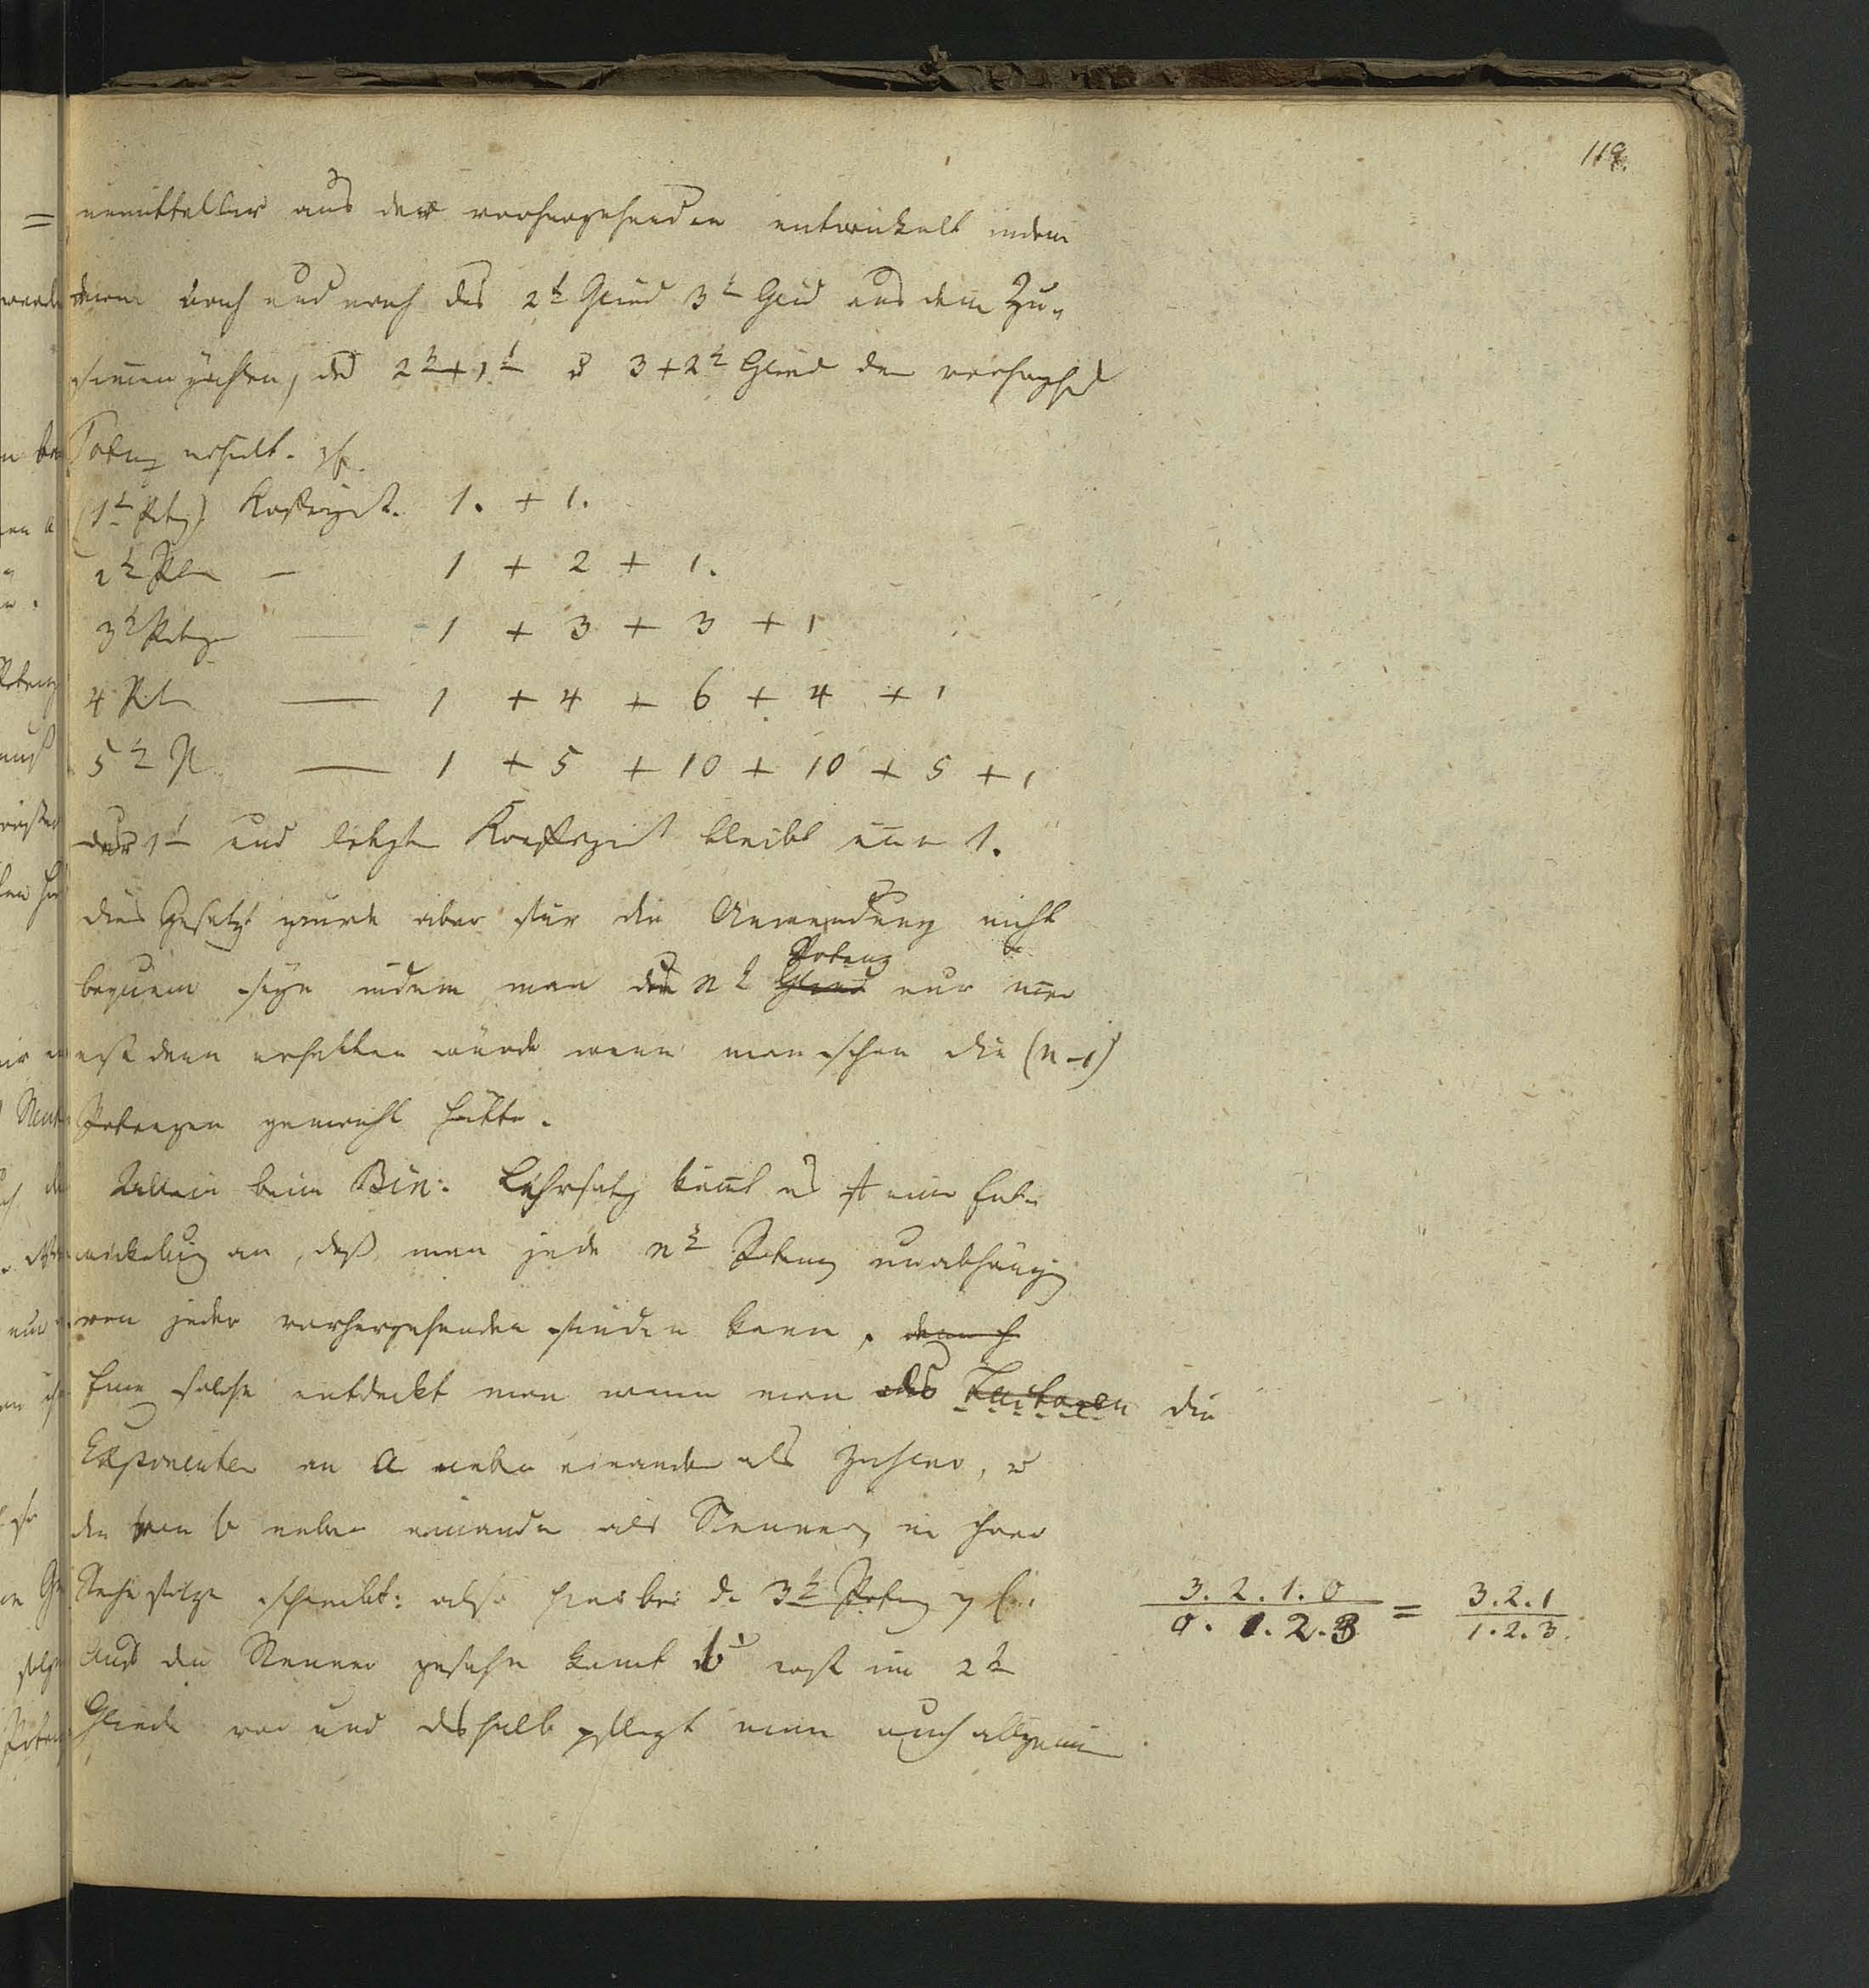 119.
unmittelbar aus der vorhergehenden entwickelt indem
man nach und nach das 2t Glied 3t Glied aus dem Zu-
sammenziehen, des 2t + 1t u 3 + 2t Glied der vorhergehd
Potenz erhielt. z b.
(1t Potz) Koeffizient. 1. + 1.
2t Potn — 1 + 2 + 1.
3t Potez — 1 + 3 + 3 + 1
4 Pot — 1 + 4 + 6 + 4 + 1
5t P. — 1 + 5 + 10 + 10 + 5 + 1
der 1t und letzte Koeffizient bleibt imer 1.
dies Gesetz würde aber für die Anwendung nicht
bequem seyn indem man die n t Glied Potenz nur imer
erst dann erhalten würde wenn man schon die (n-1)
Potenzen gemacht hätte.
Allein beim Bin: Lehrsatz kömt es auf eine Ent-
wickelung an, daß man jede nt Potenz unabhängig
von jeder vorhergehenden finden kann.
Eine solche entdeckt man wenn man als Factoren die
Exponenten von a neben einander als Zähler, u
die von b neben einander als Nenner, in ihrer
Reihe folge schreibt: also hier bei d. 3t Potenz z b.
3.2.1.0 / 0.1.2.3 = 3.2.1 / 1.2.3.
Aus den Nenner gesehn komt b erst im 2t
Gliede vor und deshalb pflegt man auch allgemein